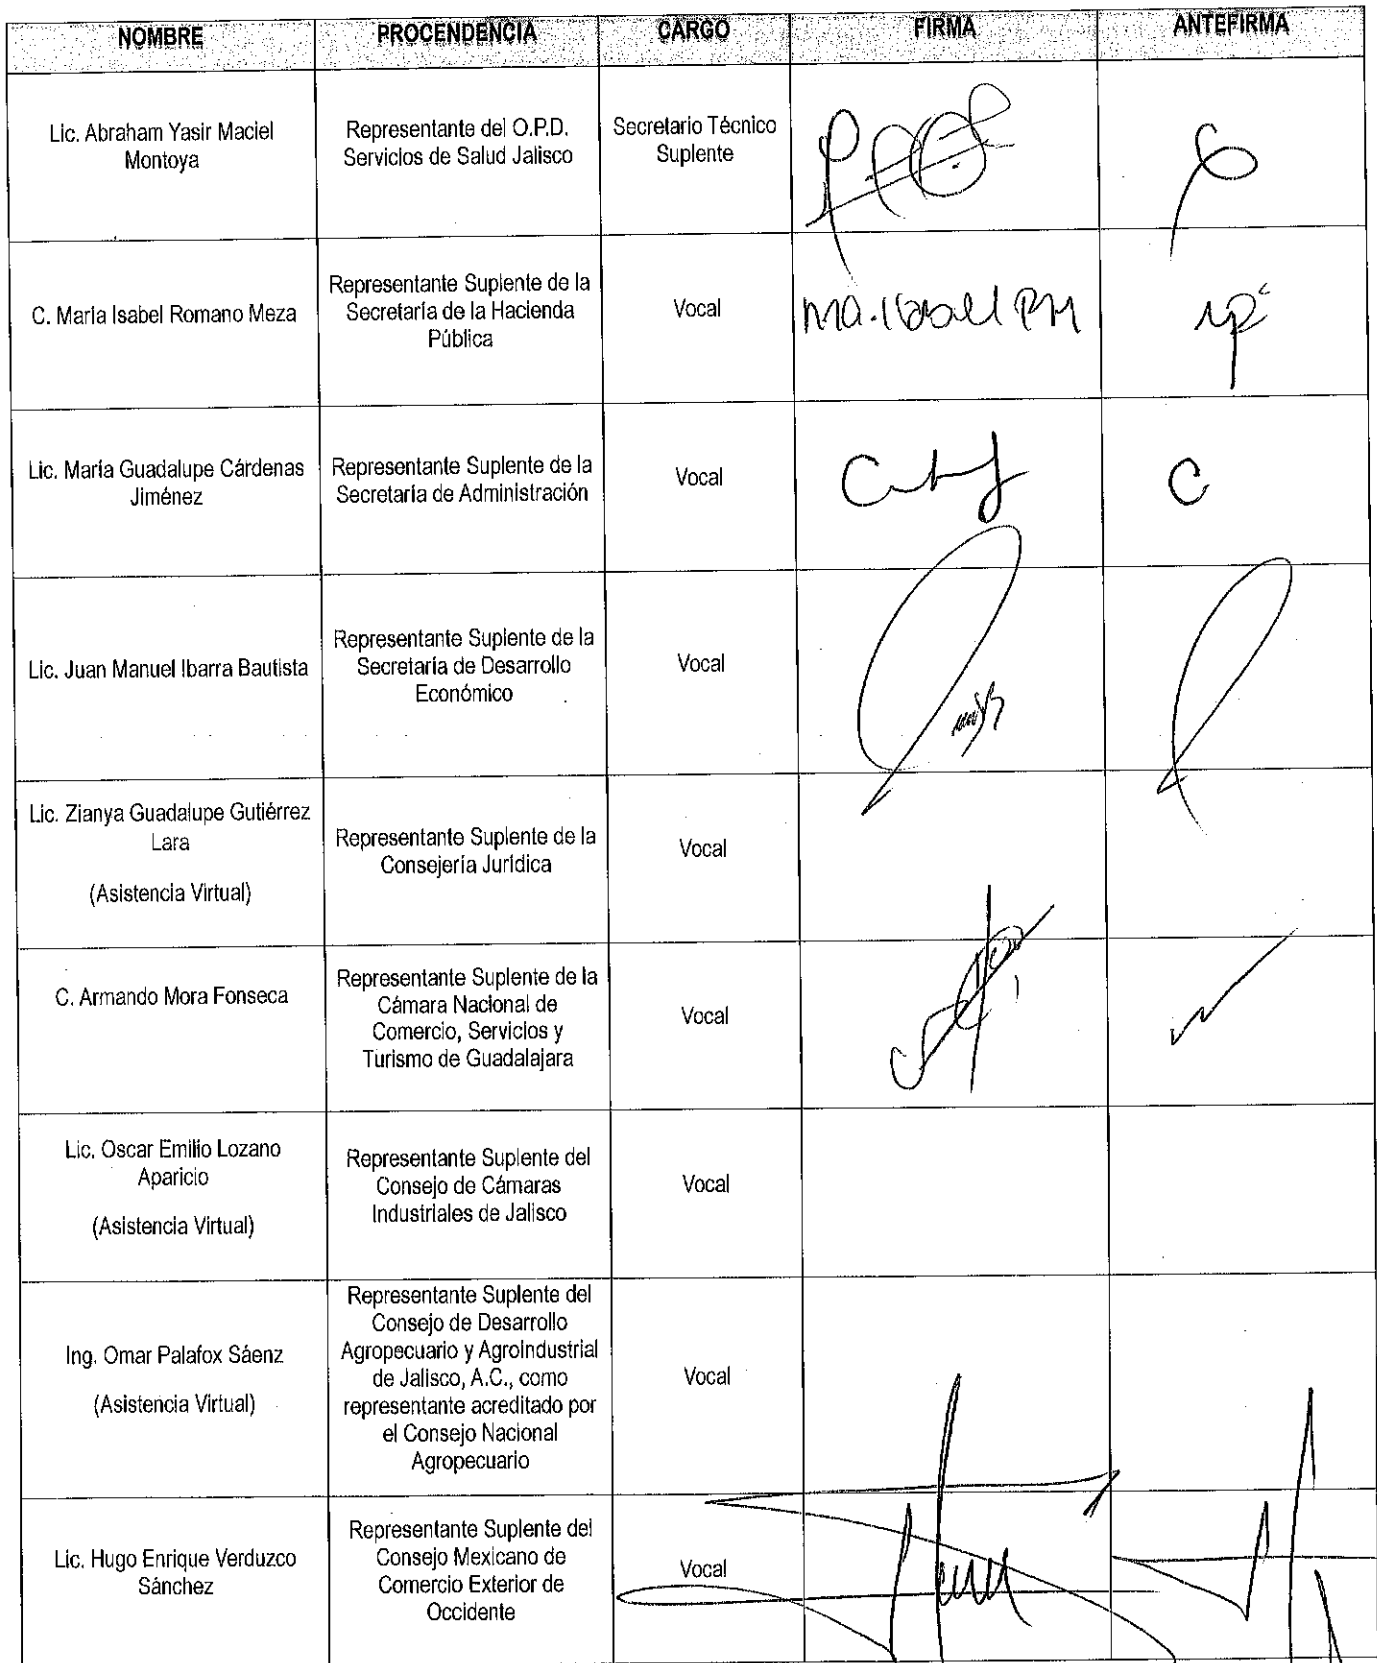 NOMBRE PROCENDENCIA CARGO FIRMA ANTEFIRMA
Lic. Abraham Yasir Maciel
Montoya
Representante del O.P.D.
Servicios de Salud Jalisco
Secretario Técnico
Suplente
C. María Isabel Romano Meza
Representante Suplente de la
Secretaría de la Hacienda
Pública
Vocal
Lic. María Guadalupe Cárdenas
Jiménez
Representante Suplente de la
Secretaría de Administración
Vocal
Lic. Juan Manuel Ibarra Bautista
Representante Suplente de la
Secretaría de Desarrollo
Económico
Vocal
Lic. Zianya Guadalupe Gutiérrez
Lara
(Asistencia Virtual)
Representante Suplente de la
Consejería Jurídica
Vocal
C. Armando Mora Fonseca
Representante Suplente de la
Cámara Nacional de
Comercio, Servicios y
Turismo de Guadalajara
Vocal
Lic. Oscar Emilio Lozano
Aparicio
(Asistencia Virtual)
Representante Suplente del
Consejo de Cámaras
Industriales de Jalisco
Vocal
Ing. Omar Palafox Sáenz
(Asistencia Virtual)
Representante Suplente del
Consejo de Desarrollo
Agropecuario y Agroindustrial
de Jalisco, A.C., como
representante acreditado por
el Consejo Nacional
Agropecuario
Vocal
Lic. Hugo Enrique Verduzco
Sánchez
Representante Suplente del
Consejo Mexicano de
Comercio Exterior de
Occidente
Vocal